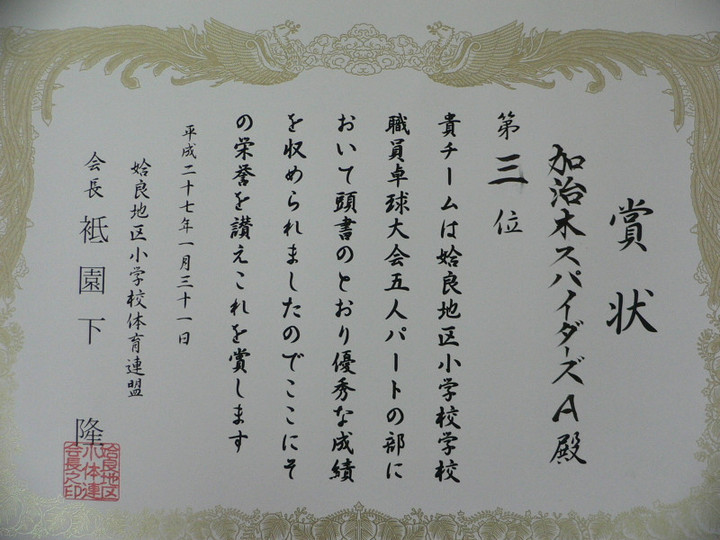 賞状
加治木スパイダーズA殿
第三位
貴チームは姶良地区小学校学校
職員卓球大会五人パートの部に
おいて頭書のとおり優秀な成績
を収められましたのでここにそ
の栄誉を讃えこれを賞します
平成二十七年一月三十一日
姶良地区小学校体育連盟
会長 祗園下 隆
姶良地区
小体連
会長之印